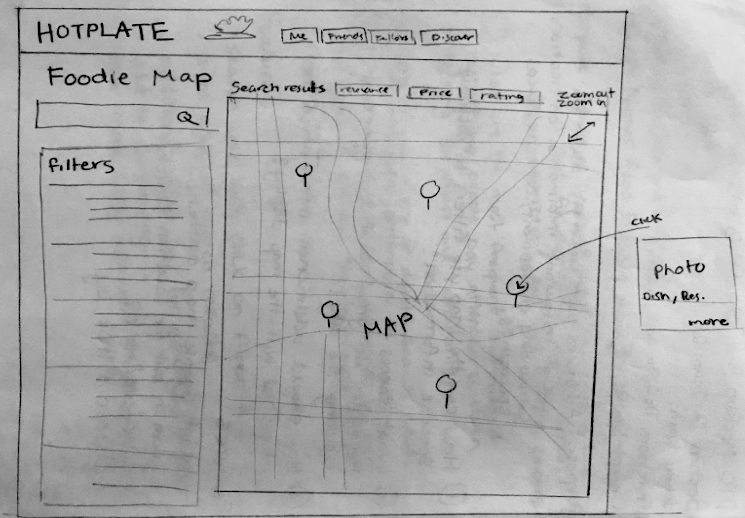 HOTPLATE
Me Friends Follors Discover
Foodie Map
Search results relevance Price rating
Zoom out
Zoom in
Q
filters
click
photo
Dish, Res.
more
MAP